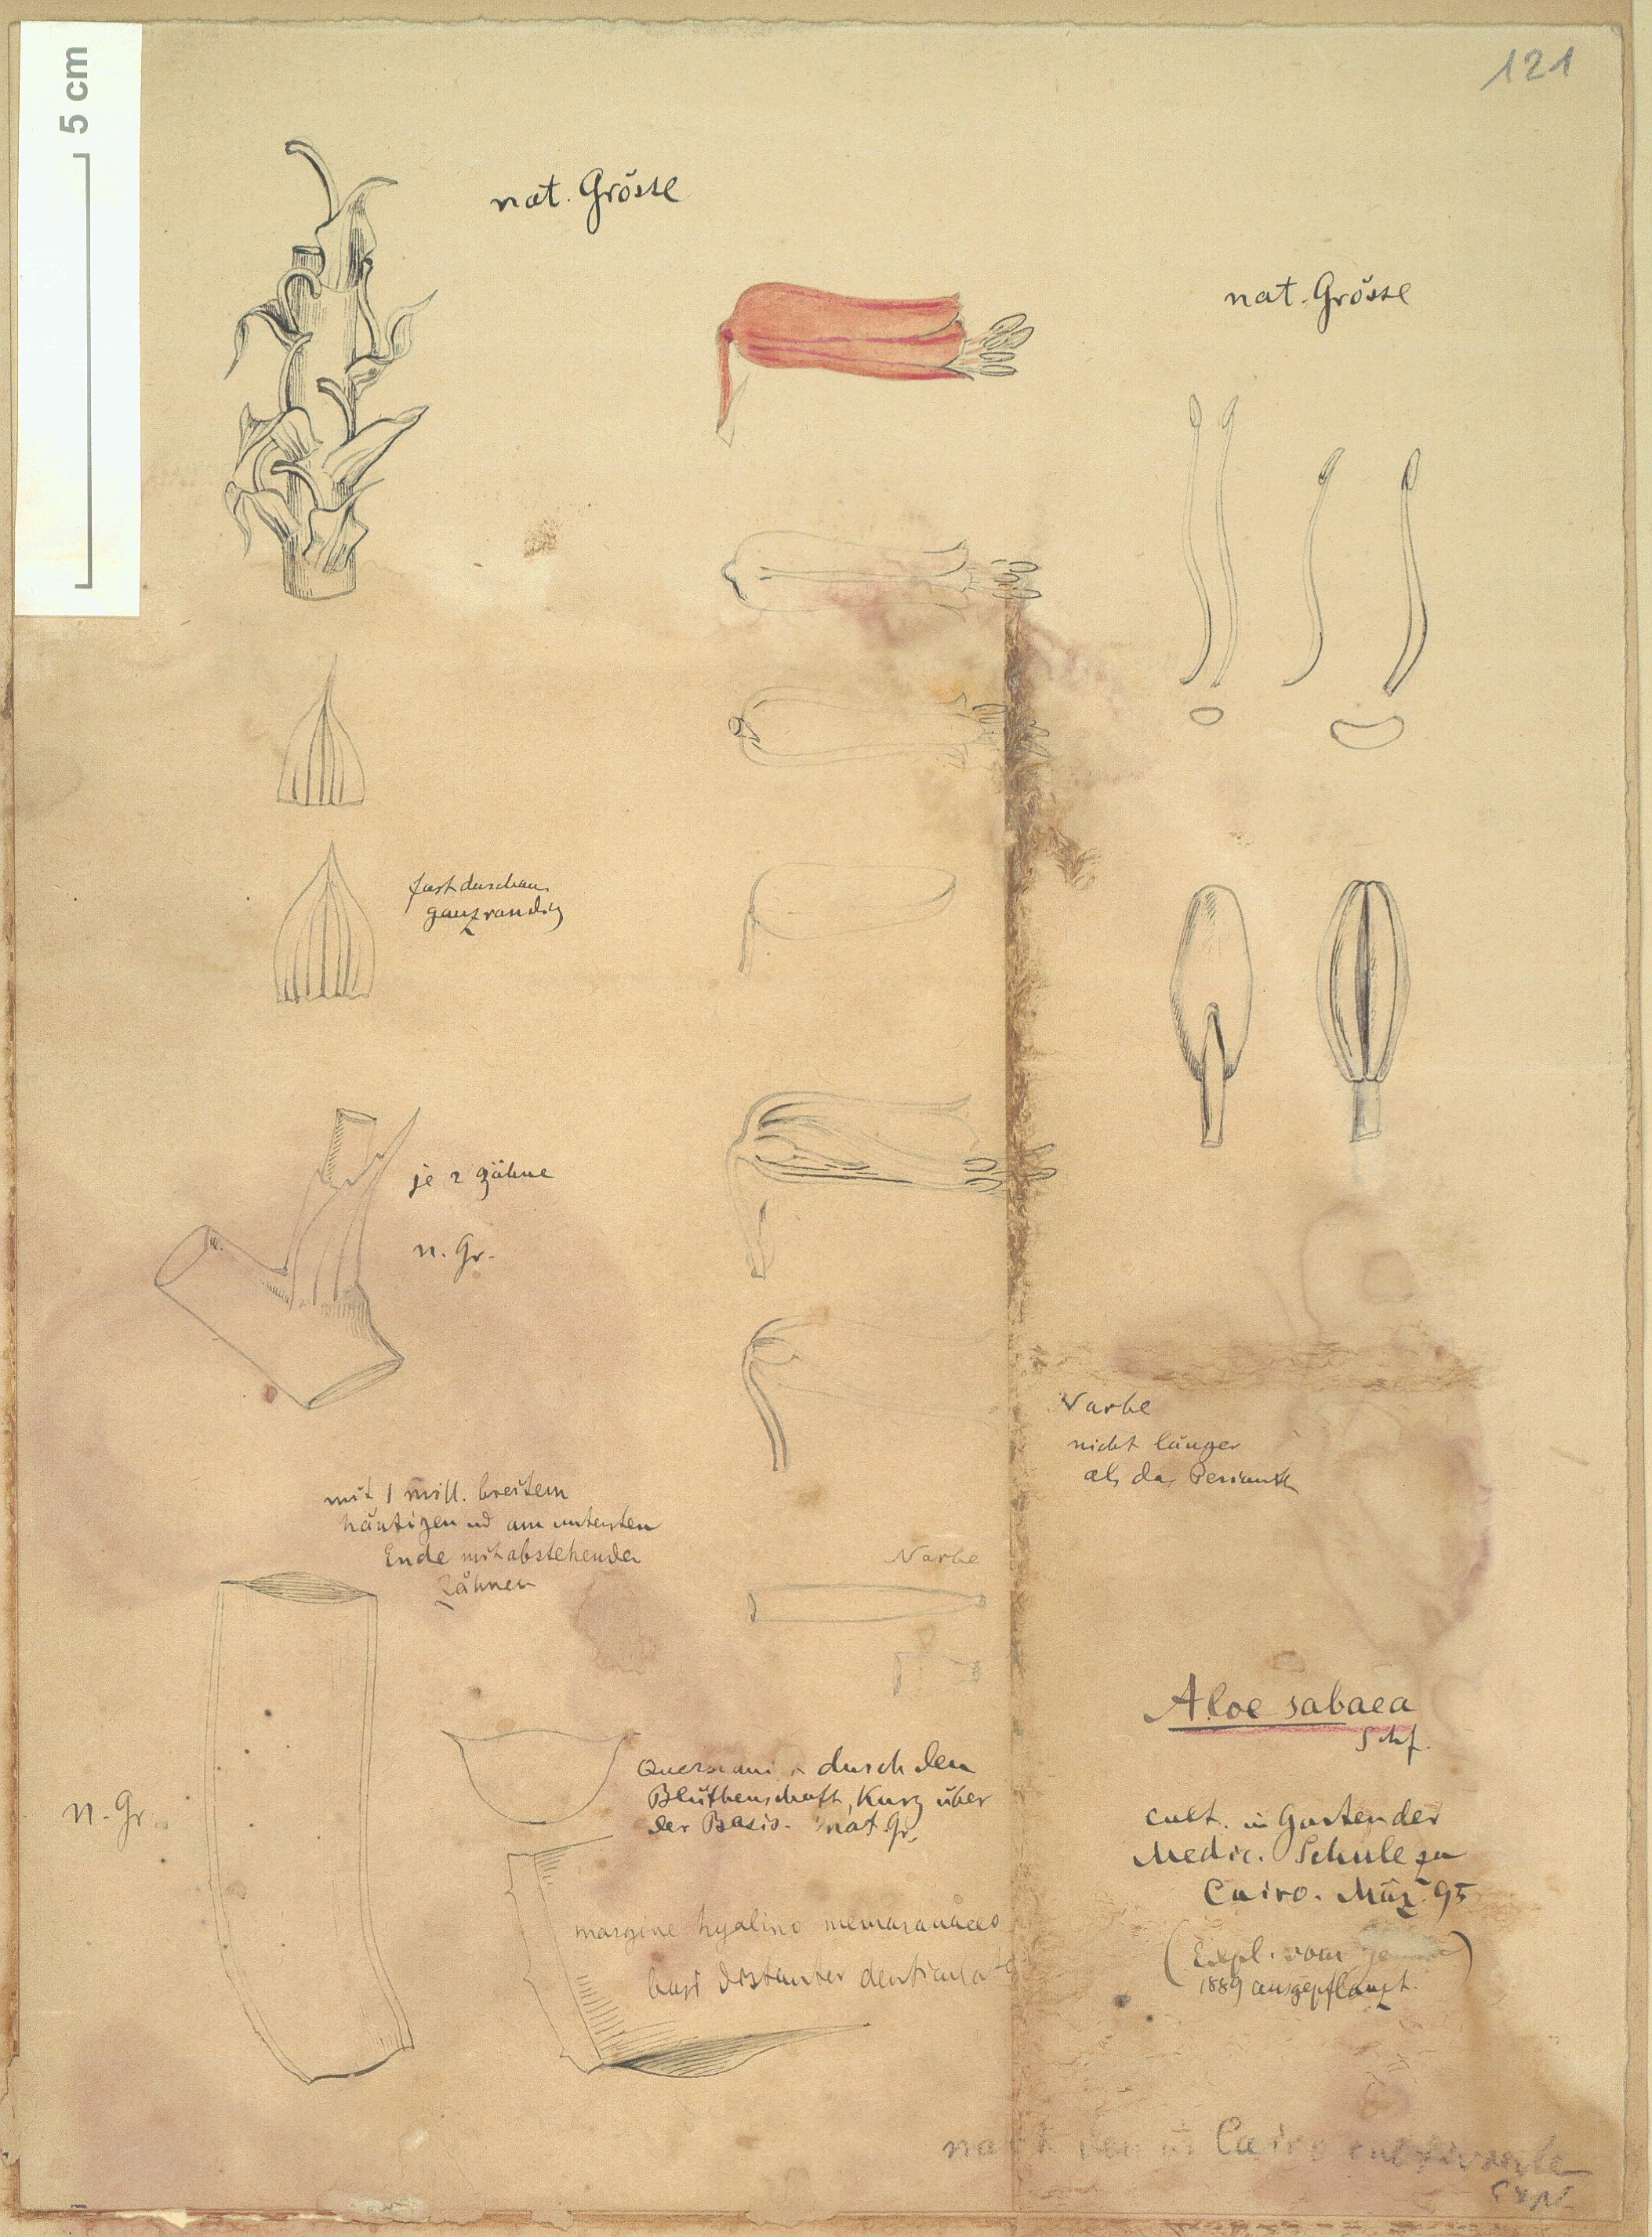 121
5 cm
nat. Grösse
nat. Grösse
fast durchaus
ganzrandig
je 2 Zähne
n. Gr.
Narbe
nicht länger
als das Perianth
mit 1 mill. breitem
häutigen ud am untersten
Ende mit abstehenden
Zähnen
Narbe
n. Gr.
durch den
Blüthenschaft, kurz über
der Basis. nat. Gr.
margine hyalino membranaceo
basi distanter denticulato
Aloe sabaea
Schf.
cult. in Garten der
Medic. Schule zu
Cairo. März 95
(Expl. vom
1889 ausgepflanzt.
nach den in Cairo cultivierten
Expl.